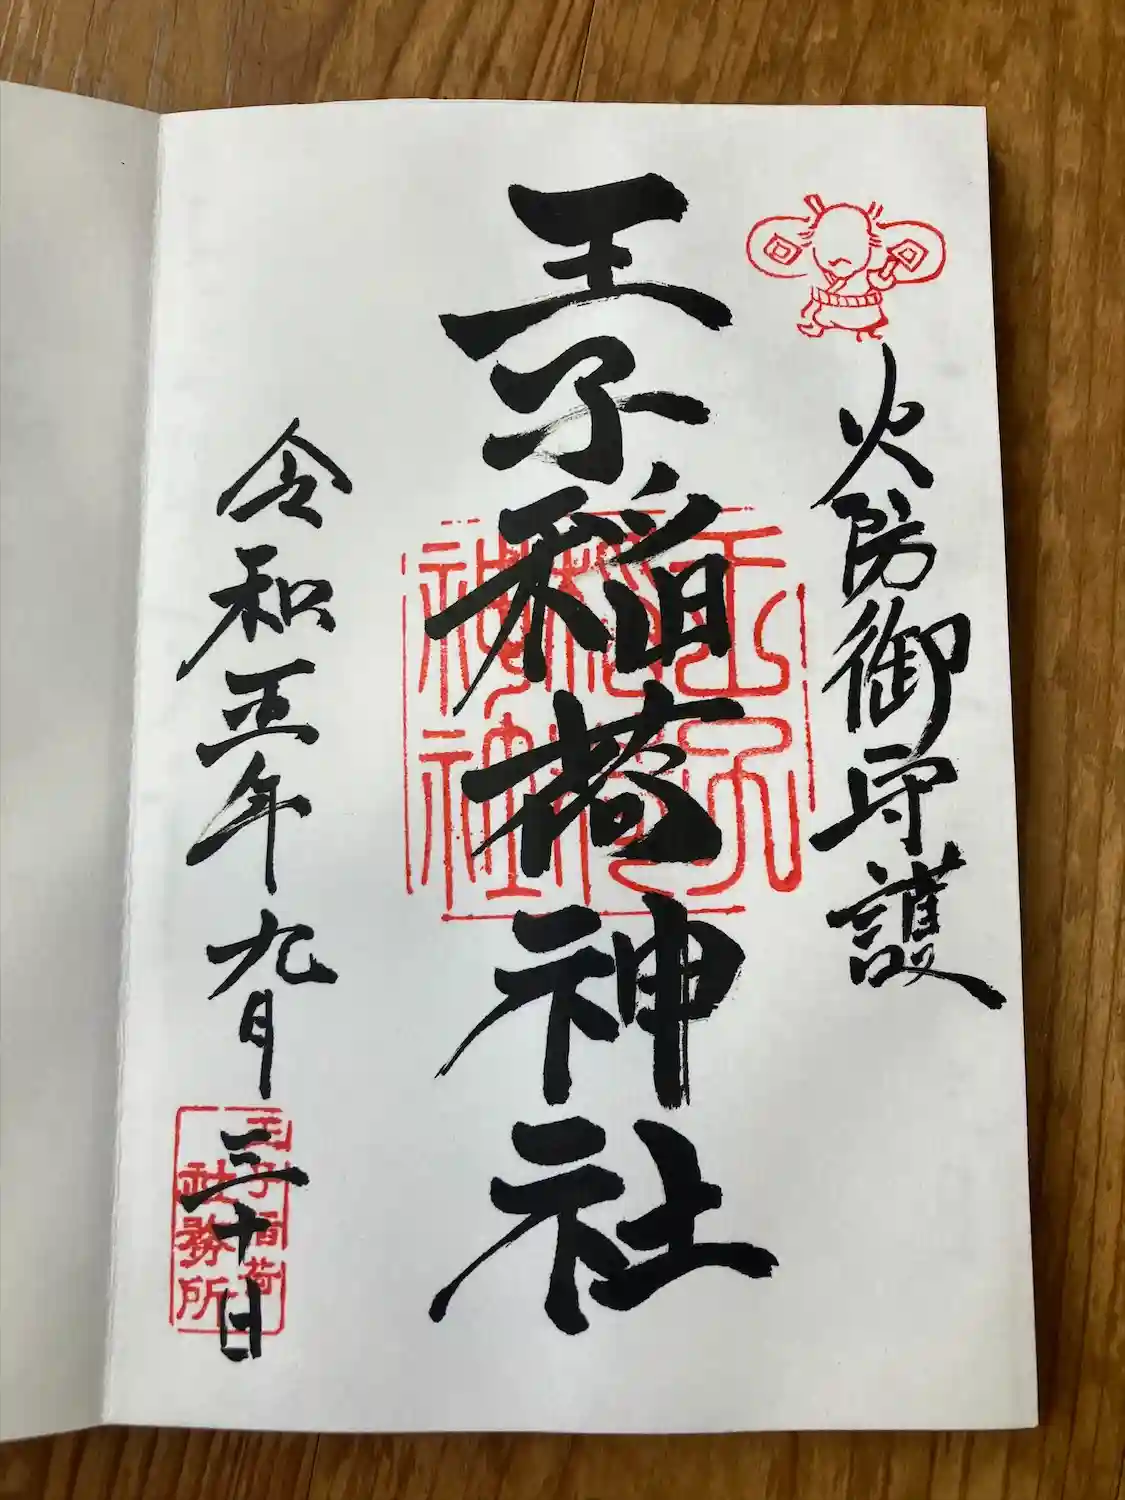 火防御守護
王子稲荷神社
王子
稲荷
神社
令和五年九月三十日
王子稲荷
社務所